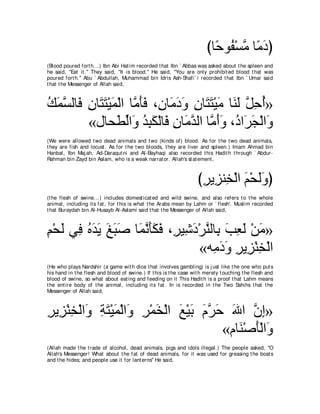 (دَمًا مَّسْفُوحًا)
(Blood poured forth...) Ibn Abi Hatim recorded that Ibn `Abbas was asked about the spleen and
he said, "Eat it." They said, "It is blood." He said, "You are only prohibited blood that was
poured forth." Abu `Abdullah, Muhammad bin Idris Ash-Shafi`i recorded that Ibn `Umar said
that the Messenger of Allah said,
«أُحِلَّ لَنَا مَيْتَتَانِ وَدَمَانِ، فَأَمَّا الْمَيْتَتَانِ فَالسَّمَكُ
وَالْجَرَادُ، وَأَمَّا الدَّمَانِ فَالْكَبِدُ وَالطِّحَال»
(We were allowed two dead animals and two (kinds of) blood. As for the two dead animals,
they are fish and locust. As for the two bloods, they are liver and spleen.) Imam Ahmad bin
Hanbal, Ibn Majah, Ad-Daraqutni and Al-Bayhaqi also recorded this Hadith through `Abdur-
Rahman bin Zayd bin Aslam, who is a weak narrator. Allah's statement,
(وَلَحْمَ الْخِنزِيرِ)
(the flesh of swine...) includes domesticated and wild swine, and also refers to the whole
animal, including its fat, for this is what the Arabs mean by Lahm or `flesh'. Muslim recorded
that Buraydah bin Al-Husayb Al-Aslami said that the Messenger of Allah said,
«مَنْ لَعِبَ بِالنَّرْدَشِيرِ، فَكَأَنَّمَا صَبَغَ يَدَهُ فِي لَحْمِ
الْخِنْزِيرِ وَدَمِه»
(He who plays Nardshir (a game with dice that involves gambling) is just like the one who puts
his hand in the flesh and blood of swine.) If this is the case with merely touching the flesh and
blood of swine, so what about eating and feeding on it This Hadith is a proof that Lahm means
the entire body of the animal, including its fat. In is recorded in the Two Sahihs that the
Messenger of Allah said,
«إِنَّ اللهَ حَرَّمَ بَيْعَ الْخَمْرِ وَالْمَيْتَةِ وَالْخِنْزِيرِ
وَالْأَصْنَام»
(Allah made the trade of alcohol, dead animals, pigs and idols illegal.) The people asked, "O
Allah's Messenger! What about the fat of dead animals, for it was used for greasing the boats
and the hides; and people use it for lanterns'' He said,